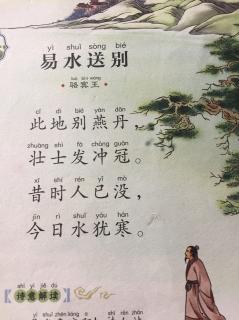 yì shuǐ sòng bié
易水送别
luò bīn wáng
骆宾王
cǐ dì bié yān dān
此地别燕丹，
zhuàng shì fà chōng guān
壮士发冲冠。
xī shí rén yǐ mò
昔时人已没，
jīn rì shuǐ yóu hán
今日水犹寒。
shī yì jiě dú
诗意解读